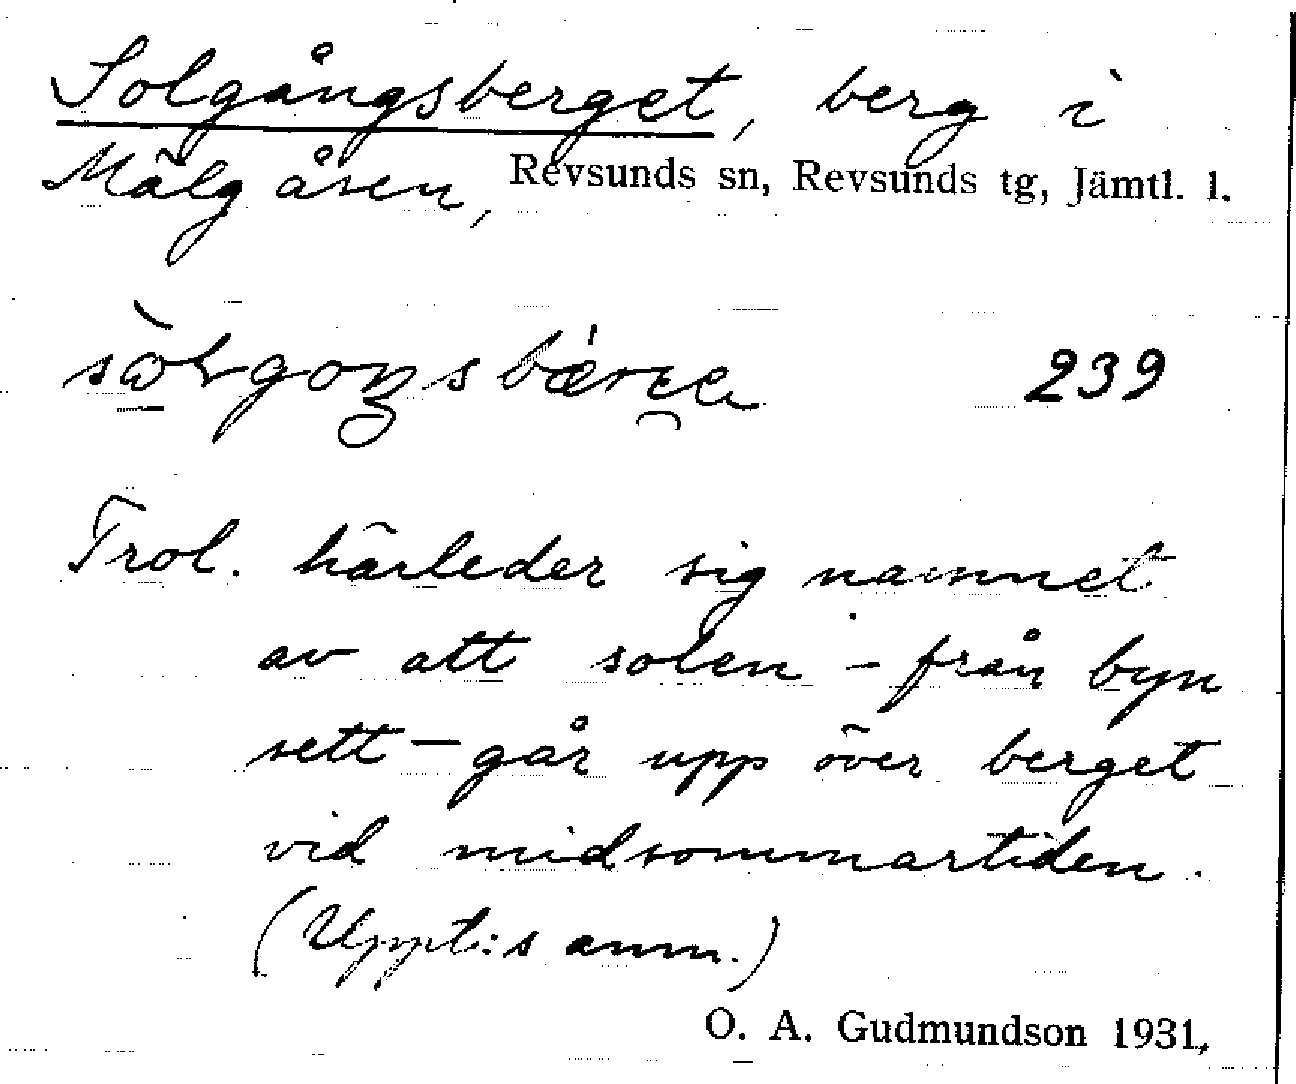 Solgångsberget, berg i
Mälgåsen, Revsunds sn, Revsunds tg, Jämtl. l.
239
Trol. härleder sig namnet
av att solen – från byn
sett – går upp över berget
vid midsommartiden.
(Uppt:s anm.)
O. A. Gudmundson 1931,